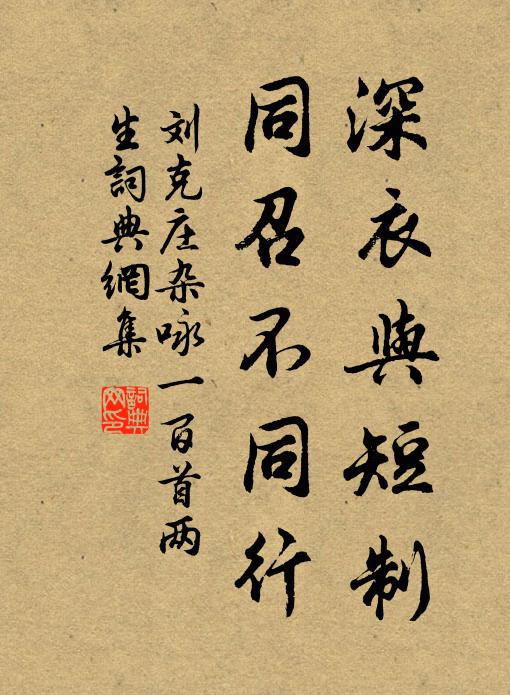 深衣與短制
同召不同行
刘克庄杂咏一百首两
生詞典網集
詞典
网印